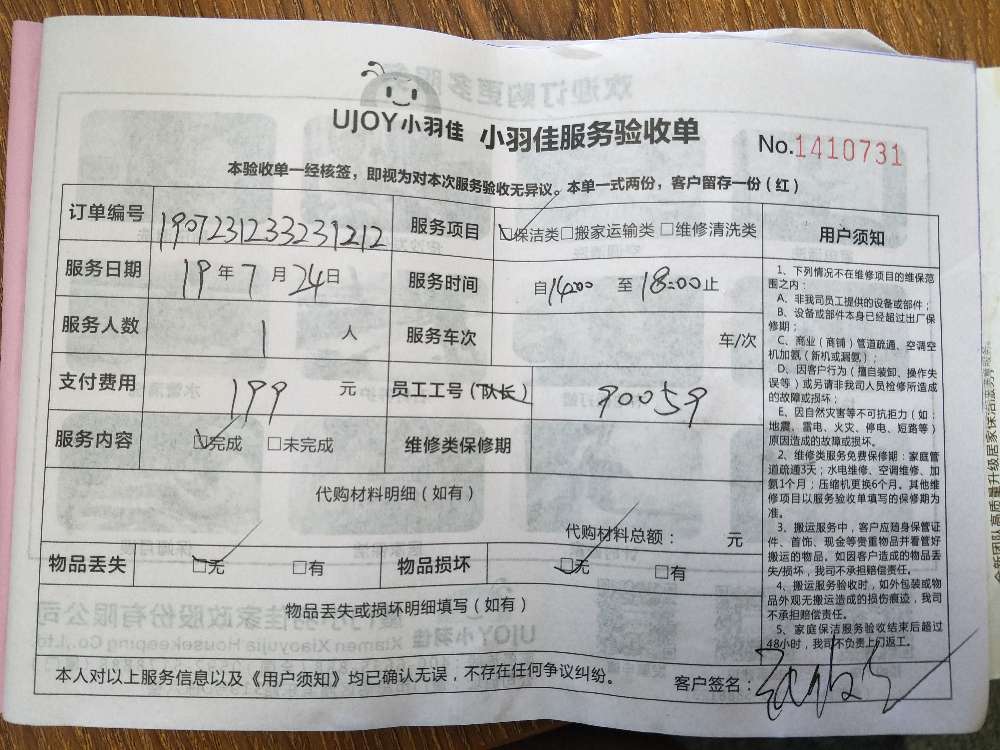 UJOY小羽佳 小羽佳服务验收单 No.1410731
本验收单一经核签，即视为对本次服务验收无异议。本单一式两份，客户留存一份（红）
订单编号 1907231233231212 服务项目 ☑保洁类□搬家运输类□维修清洗类
服务日期 19年7月24日 服务时间 自14:00 至18:00止
服务人数 1人 服务车次 车/次
支付费用 199元 员工工号（队长） 90059
服务内容 ☑完成 □未完成 维修类保修期
代购材料明细（如有）
代购材料总额： 元
物品丢失 ☑无 □有 物品损坏 ☑无 □有
物品丢失或损坏明细填写（如有）
本人对以上服务信息以及《用户须知》均已确认无误，不存在任何争议纠纷。 客户签名：
用户须知
1、下列情况不在维修项目的维保范
围之内：
A、非我司员工提供的设备或部件；
B、设备或部件本身已经超过出厂保
修期；
C、商业（商铺）管道疏通、空调空
机加氨（新机或漏氨）；
D、因客户行为（擅自装卸、操作失
误等）或另请非我司人员检修所造成
的故障或损坏；
E、因自然灾害等不可抗拒力（如：
地震、雷电、火灾、停电、短路等）
原因造成的故障或损坏。
2、维修类服务免费保修期：家庭管
道疏通3天；水电维修、空调维修、加
氨1个月；压缩机更换6个月。其他维
修项目以服务验收单填写的保修期为
准。
3、搬运服务中，客户应随身保管证
件、首饰、现金等贵重物品并看管好
搬运的物品。如因客户造成的物品丢
失/损坏，我司不承担赔偿责任。
4、搬运服务验收时，如外包装或物
品外观无搬运造成的损伤痕迹，我司
不承担赔偿责任。
5、家庭保洁服务验收结束后超过
48小时，我司不负责上门返工。